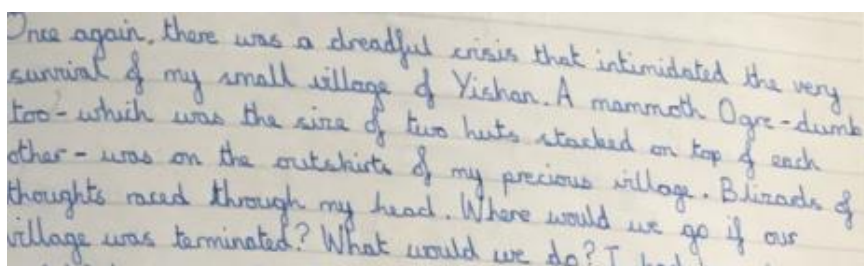 Once again, there was a dreadful crisis that intimidated the very
survival of my small village of Yishan. A mammoth Ogre-dumb
too- which was the size of two huts stacked on top of each
other - was on the outskirts of my precious village. Blizards of
thoughts raced through my head. Where would we go if our
village was terminated? What would we do? I had